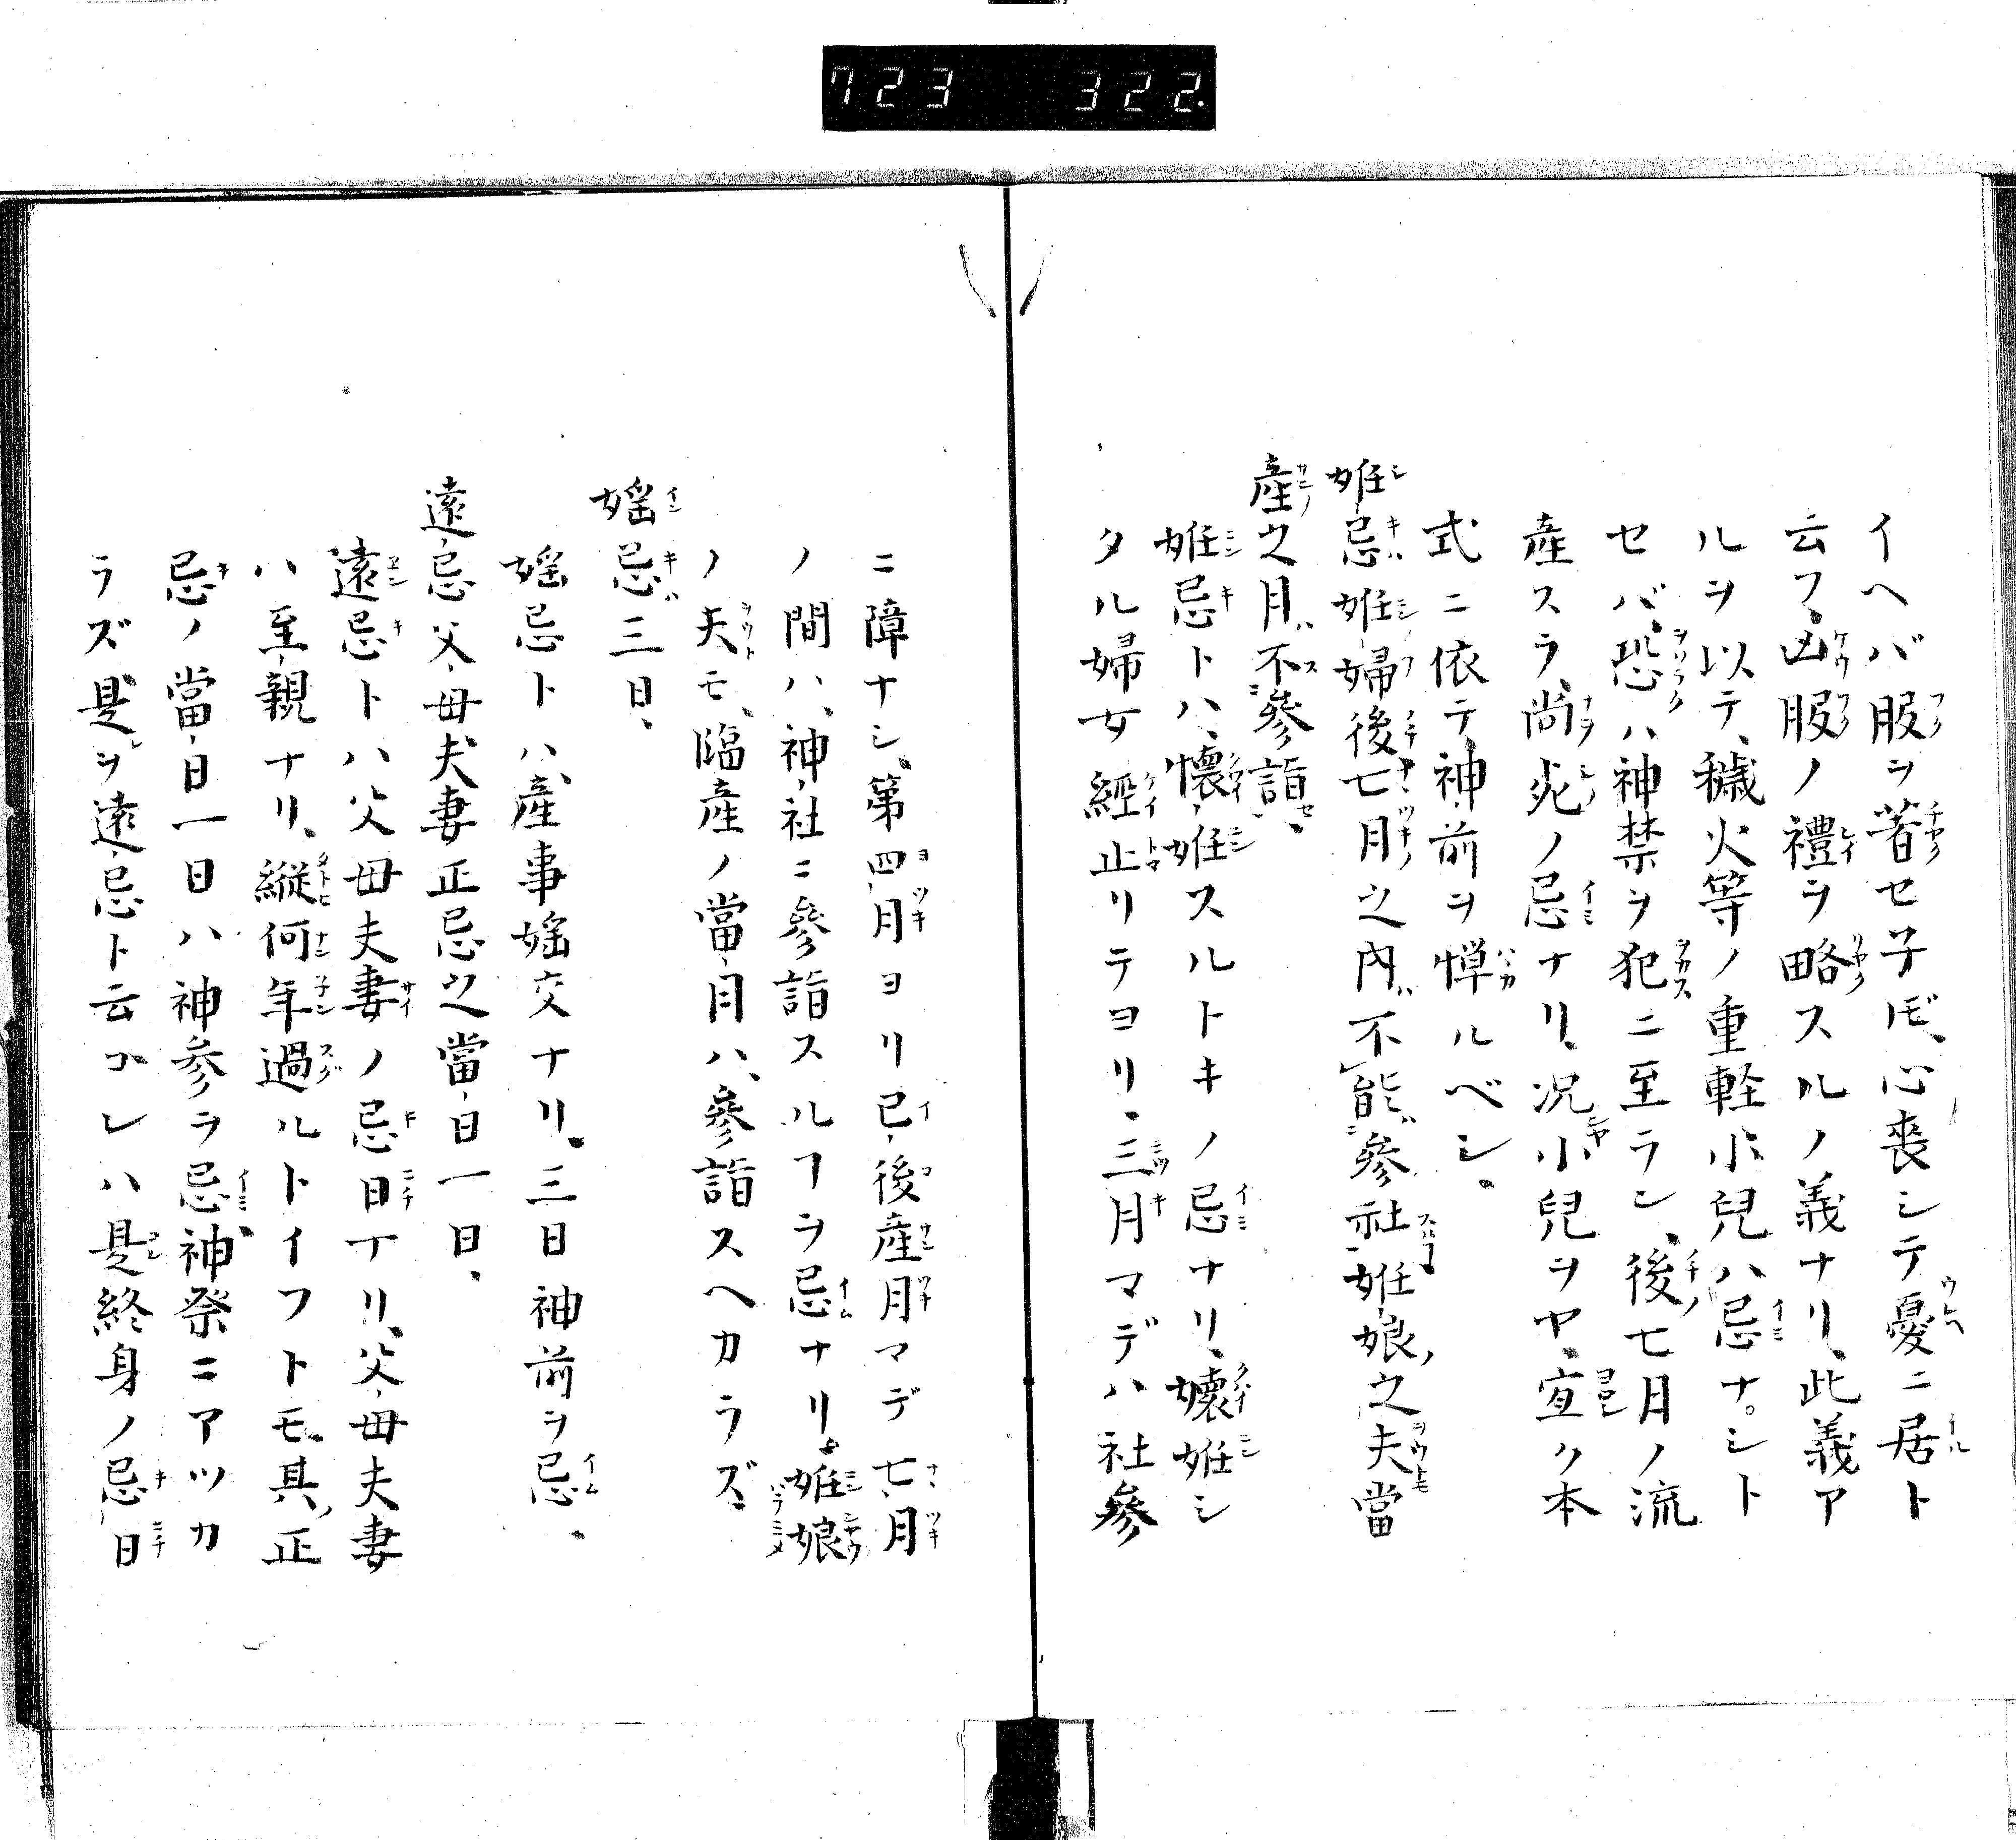 723 322.
イヘバ服ヲ著セ子𪜈、心喪シテ憂ニ居ト
云フ、凶服ノ禮ヲ略スルノ義ナリ、此義ア
ルヲ以テ、穢火等ノ重軽、小兒ハ忌ナシト
セバ、恐ハ神禁ヲ犯ニ至ラン、後七月ノ流
產スラ、尚死ノ忌ナリ、况小兒ヲヤ、宜ク本
式ニ依テ、神前ヲ憚ルベシ、
姙忌姙婦後七月之內不能參社、姙娘之夫當
產之月不參詣、
姙忌トハ、懷姙スルトキノ忌ナリ、懷姙シ
タル婦女經止リテヨリ、三月マデハ社參
ニ障ナシ、第四月ヨリ已後產月マデ七月
ノ間ハ、神社ニ參詣スルヿヲ忌ナリ、姙娘
ノ夫モ、臨產ノ當月ハ、參詣スヘカラズ、
婬忌三日、
婬忌トハ、產事婬交ナリ、三日神前ヲ忌、
遠忌父母夫妻正忌之當日一日、
遠忌トハ父母夫妻ノ忌日ナリ、父母夫妻
ハ至親ナリ、縱何年過ルトイフトモ、其正
忌ノ當日一日ハ神参ヲ忌、神祭ニアツカ
ラズ、是ヲ遠忌ト云、コレハ是終身ノ忌日